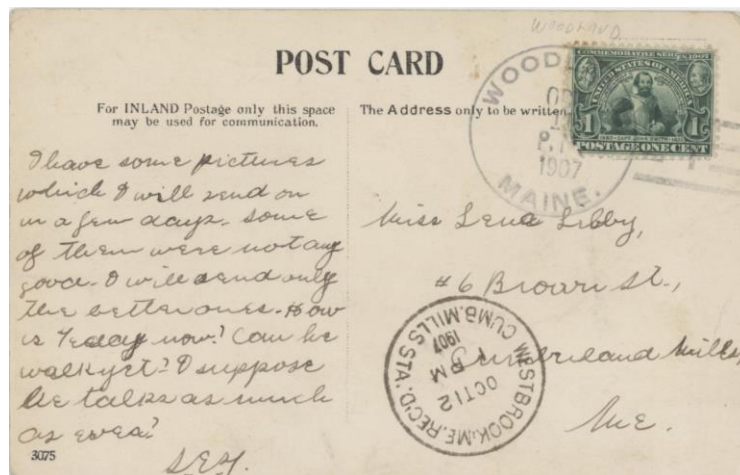 WOODLAND.
POST CARD
For INLAND Postage only this space
may be used for communication.
The Address only to be written
WOODL
P.
1907
MAINE.
COMMEMORATIVE SERIES 1907
UNITED STATES OF AMERICA
1 1
POSTAGE ONE CENT
I have some pictures
which I will send on
in a few days. Some
of them were not any
good. I will send only
the better ones. How
is Teday now? Can he
walk yet? I suppose
he talks as much
as ever?
3075
Miss Lena Libby,
#6 Brown St.,
Cumberland Mills,
Me.
WESTBROOK, ME. REC'D.
OCT 12
PM
1907
CUMB. MILLS STA.